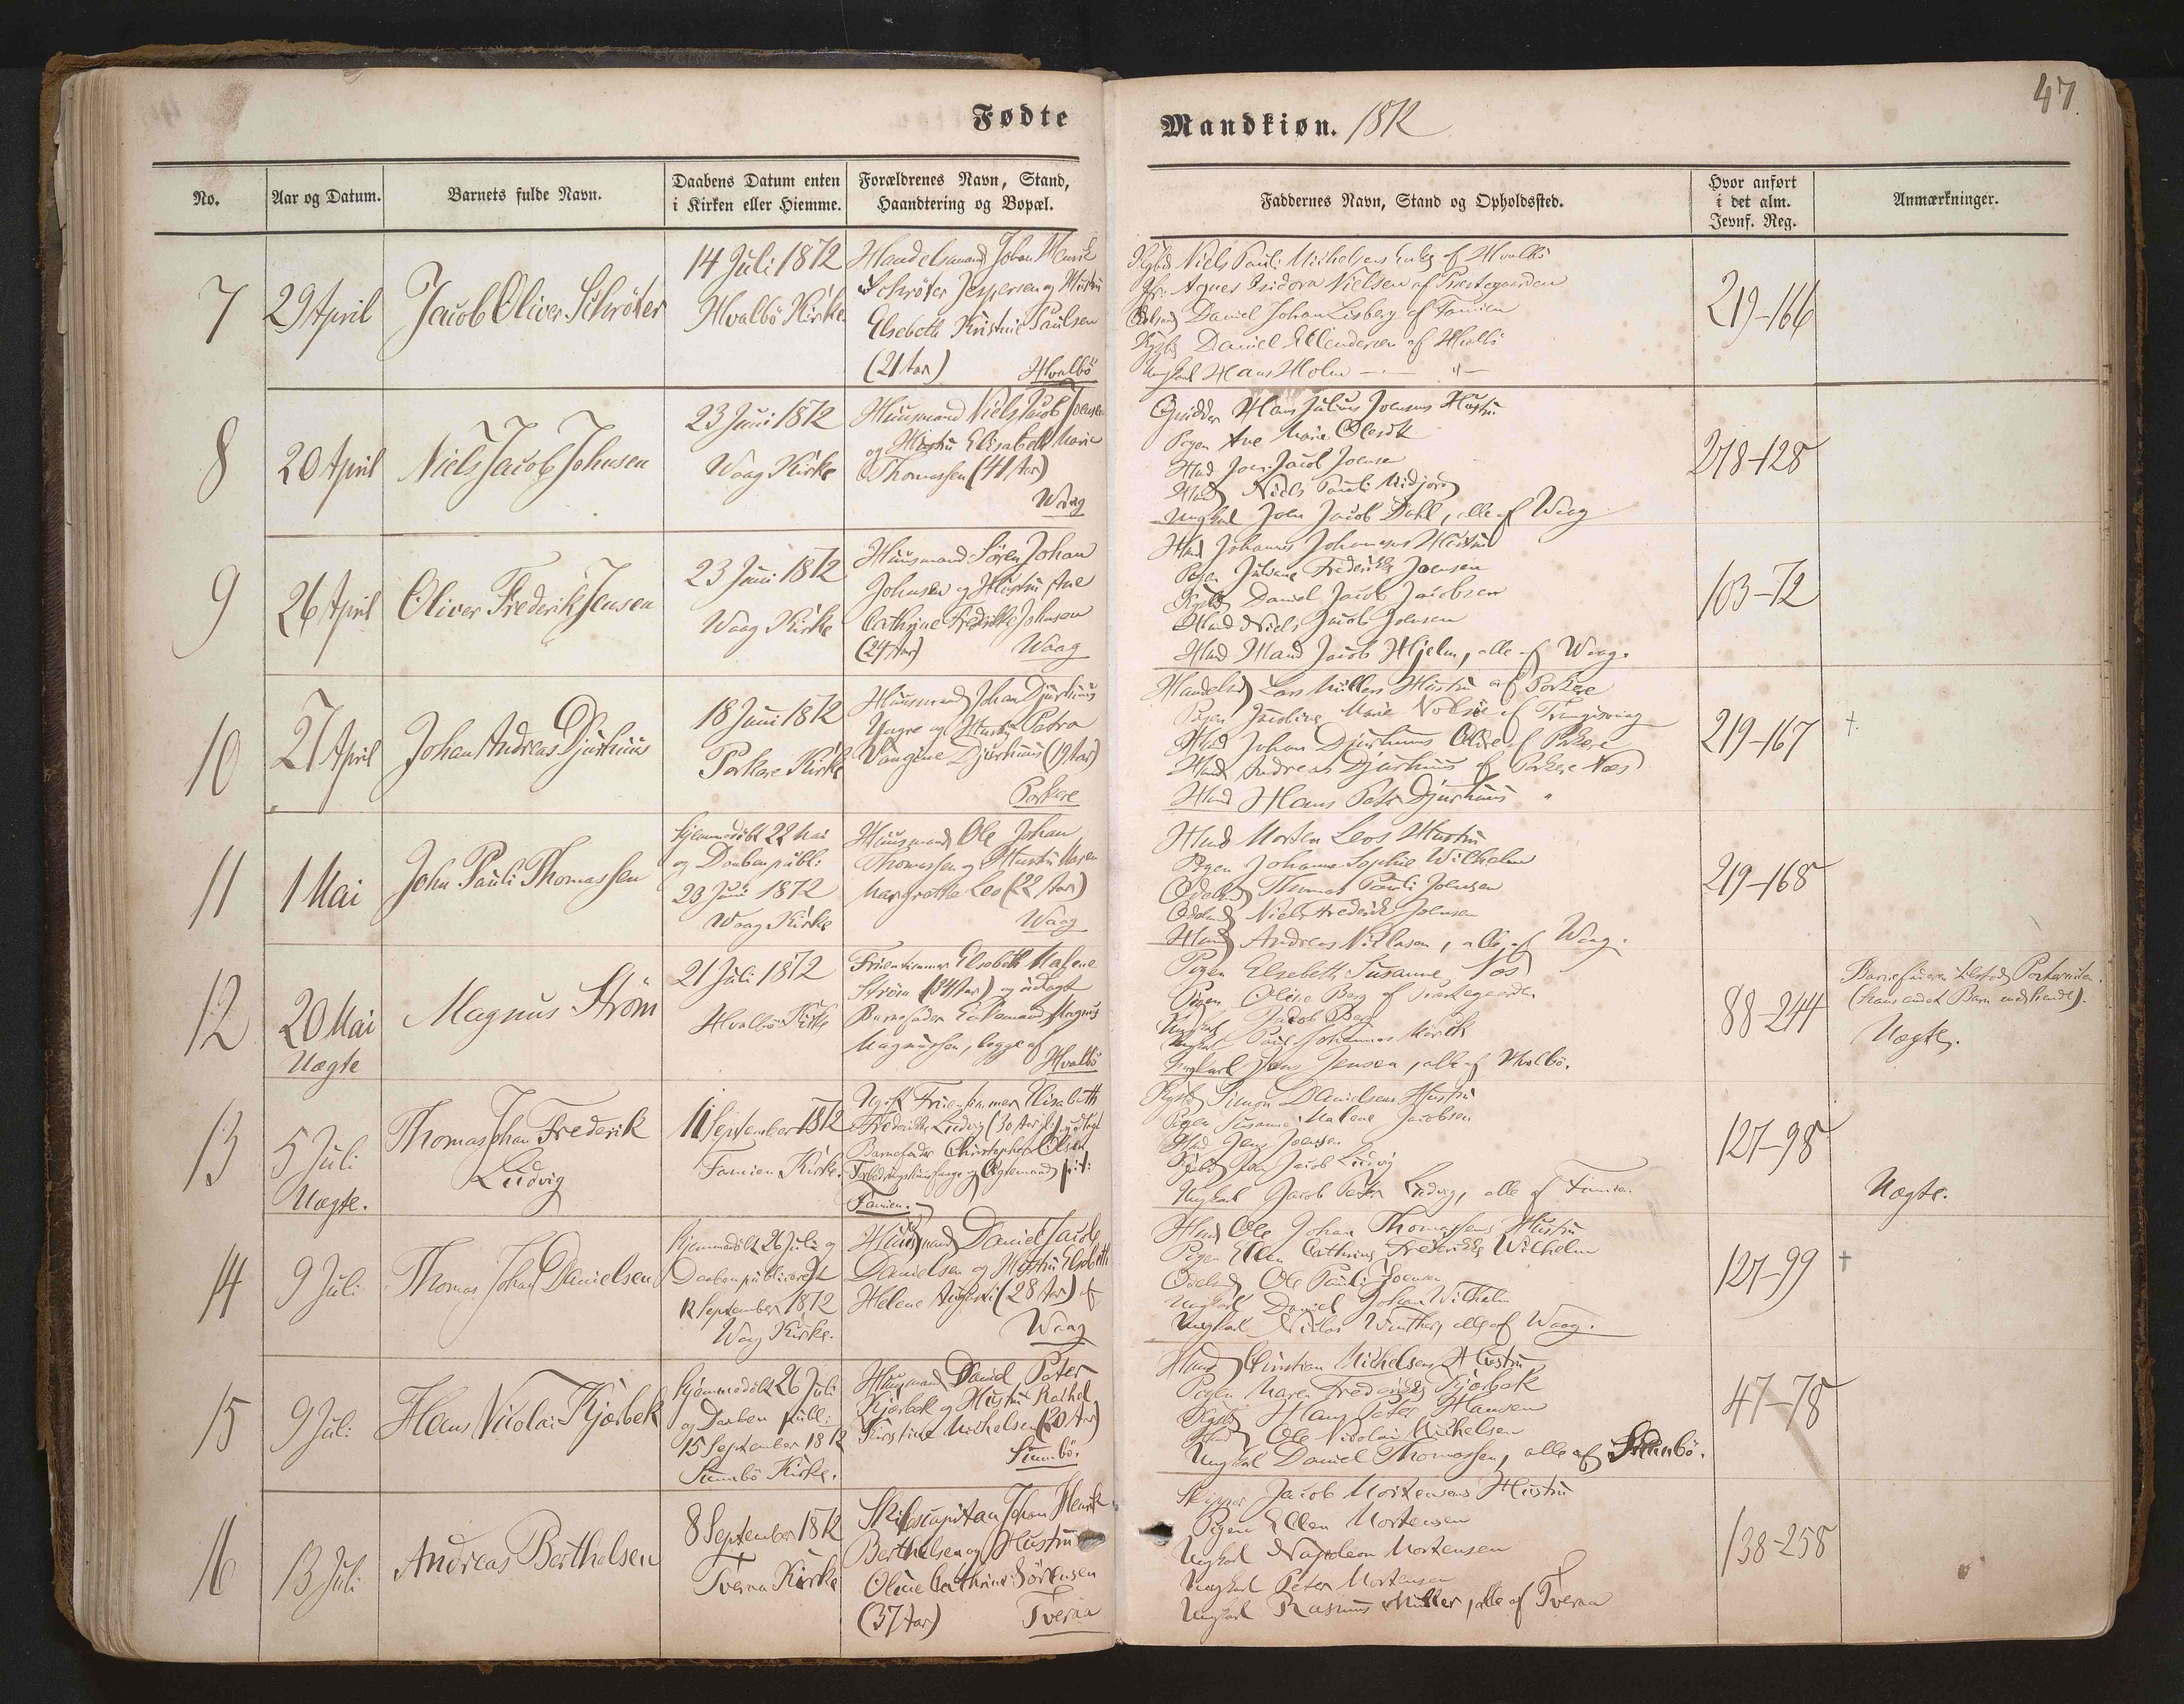 47
Fødte
Mandkiøn. 1872
No.
Aar og Datum.
Barnets fulde Navn.
Daabens Datum enten
i Kirken eller Hiemme.
Forældrenes Navn, Stand,
Haandtering og Bopæl.
Faddernes Navn, Stand og Opholdssted.
Hvor anført
i det alm.
Jevnf. Reg.
Anmærkninger.
7
29 April
Jacob Oliver Schrøter
14 Juli 1872
Hvalbö Kirke
Handelsmand Johan Henrik
Schrøter Jespersen og Hustru
Elsebeth Kristine Paulsen
(21 Aar) Hvalbö
Niels Pauli Michelsens Enke af Hvalbö
Agnes Isidora Nielsen af Præstegaarden
Daniel Johan Lisberg af Famien
Daniel Ellendersen af Hvalbö
Ungkarl Hans Holm — " —
219-166
8
20 April
Niels Jacob Johnsen
23 Juni 1872
Waag Kirke
Huusmand Niels Jacob Joensen
og Hustru Elisabeth Marie
Thomassen (41 Aar)
Waag
Hans Julius Joensens Hustru
Pigen Ane Marie
Hmd Joen Jacob Joensen
Hmd Niels Pauli Midjord
Ungkarl Joen Jacob Dahl, alle af Waag
218-128
9
26 April
Oliver Frederik Jensen
23 Juni 1872
Waag Kirke
Huusmand Sören Johan
Johnsen og Hustru Ane
Cathrine Fredrikke Johnsen
(24 Aar) Waag
Hmd Johannes Johannesens Hustru
Pigen Juliane Frederikke Joensen
Daniel Jacob Jacobsen
Hmd Niels Jacob Joensen
Hmd Jacob Hjelm, alle af Waag.
103-72
10
27 April
Johan Andreas Djurhuus
18 Juni 1872
Porkere Kirke
Huusmand Johan Djurhuus
Yngre og Hustru Petra
Vangine Djurhuus (19 Aar)
Porkere
Lars Müllers Hustru af Porkere
Pigen Jacobine Marie Nolsøe af Trangisvaag
Hmd Johan Djurhuus Ældre af Porkere
Hmd Andreas Djurhuus af Porkere Næs
Hmd Hans Peter Djurhuus "
219-167
†.
11
1 Mai
John Pauli Thomassen
Hjemmedöbt 22 Mai
og Daaben publ:
23 Juni 1872
Waag Kirke
Huusmand Ole Johan
Thomassen og Hustru Maren
Margrethe Leo (22 Aar)
Waag
Hmd Morten Leos Hustru
Pigen Johanne Sophie Wilhelm
Odelsmd Thomas Pauli Joensen
Odelsmd Niels Frederik Joensen
Hmd Andreas Nielsen, alle af Waag.
219-168
12
20 Mai
Uægte
Magnus Ström
21 Juli 1872
Hvalbö Kirke
Fruentimmer Elsebeth Malene
Ström (34 Aar) og udlagt
Barnefader Enkemand Magnus
Magnussen, begge af
Hvalbö
Pigen Elsebeth Susanne Næs
Pigen Olive Berg af Præstegaarden
Ungkarl Jacob Berg
Ungkarl Poul Johannes
Ungkarl Jens Jensen, alle af Hvalbö.
88-244
Barnefaderen tilstod Paterniteten.
(hans andet Barn med hende).
Uægte.
13
5 Juli
Uægte.
Thomas Johan Frederik
Ludvig
11 September 1872
Famien Kirke.
Ugift Fruentimmer Elisabeth
Frederikke Ludvig (30 Aar) og udlagt
Barnefader Christopher Olsen
Famien.
Simon Danielsens Hustru
Pigen Susanne Malene Jacobsen
Hmd Jens Joensen
Jacob Ludvig
Ungkarl Jacob Peter Ludvig, alle af Famien.
127-98
Uægte.
14
9 Juli
Thomas Johan Danielsen
Hjemmedöbt 26 Juli og
Daaben publiceret
12 September 1872
Waag Kirke.
Huusmand Daniel Jacob
Danielsen og Hustru Elsebeth
Helene (28 Aar) af
Waag
Hmd Ole Johan Thomassens Hustru
Pigen Ellen Cathrine Frederikke Wilhelm
Odelsmd Ole Pauli Joensen
Ungkarl Daniel Johan Wilhelm
Ungkarl Nicolai Winther, alle af Waag.
127-99
†
15
9 Juli
Hans Nicolai Kjærbek
Hjemmedöbt 26 Juli
og Daaben publ:
15 September 1872
Sumbö Kirke.
Huusmand Daniel Peter
Kjærbek og Hustru Rachel
Kirstine Michelsen (20 Aar)
Sumbö.
Hmd Christian Michelsens Hustru
Pigen Maren Frederikke Kjærbek
Hans Peter Hansen
Hmd Ole Nicolai Michelsen
Ungkarl Daniel Thomassen, alle af Sumbö.
47-78
16
13 Juli
Andreas Berthelsen
8 September 1872
Tveraa Kirke
Skibscapitan Johan Henrik
Berthelsen og Hustru
Oline Cathrine Sörensen
(37 Aar) Tveraa
Skipper Jacob Mortensens Hustru
Pigen Ellen Mortensen
Ungkarl Napoleon Mortensen
Ungkarl Peter Mortensen
Ungkarl Rasmus Müller, alle af Tveraa
138-258